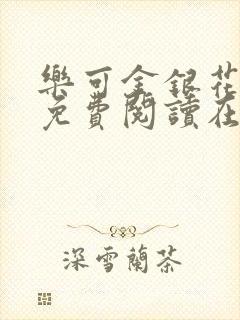 樂可金銀花
免費閱讀在
深雪蘭茶